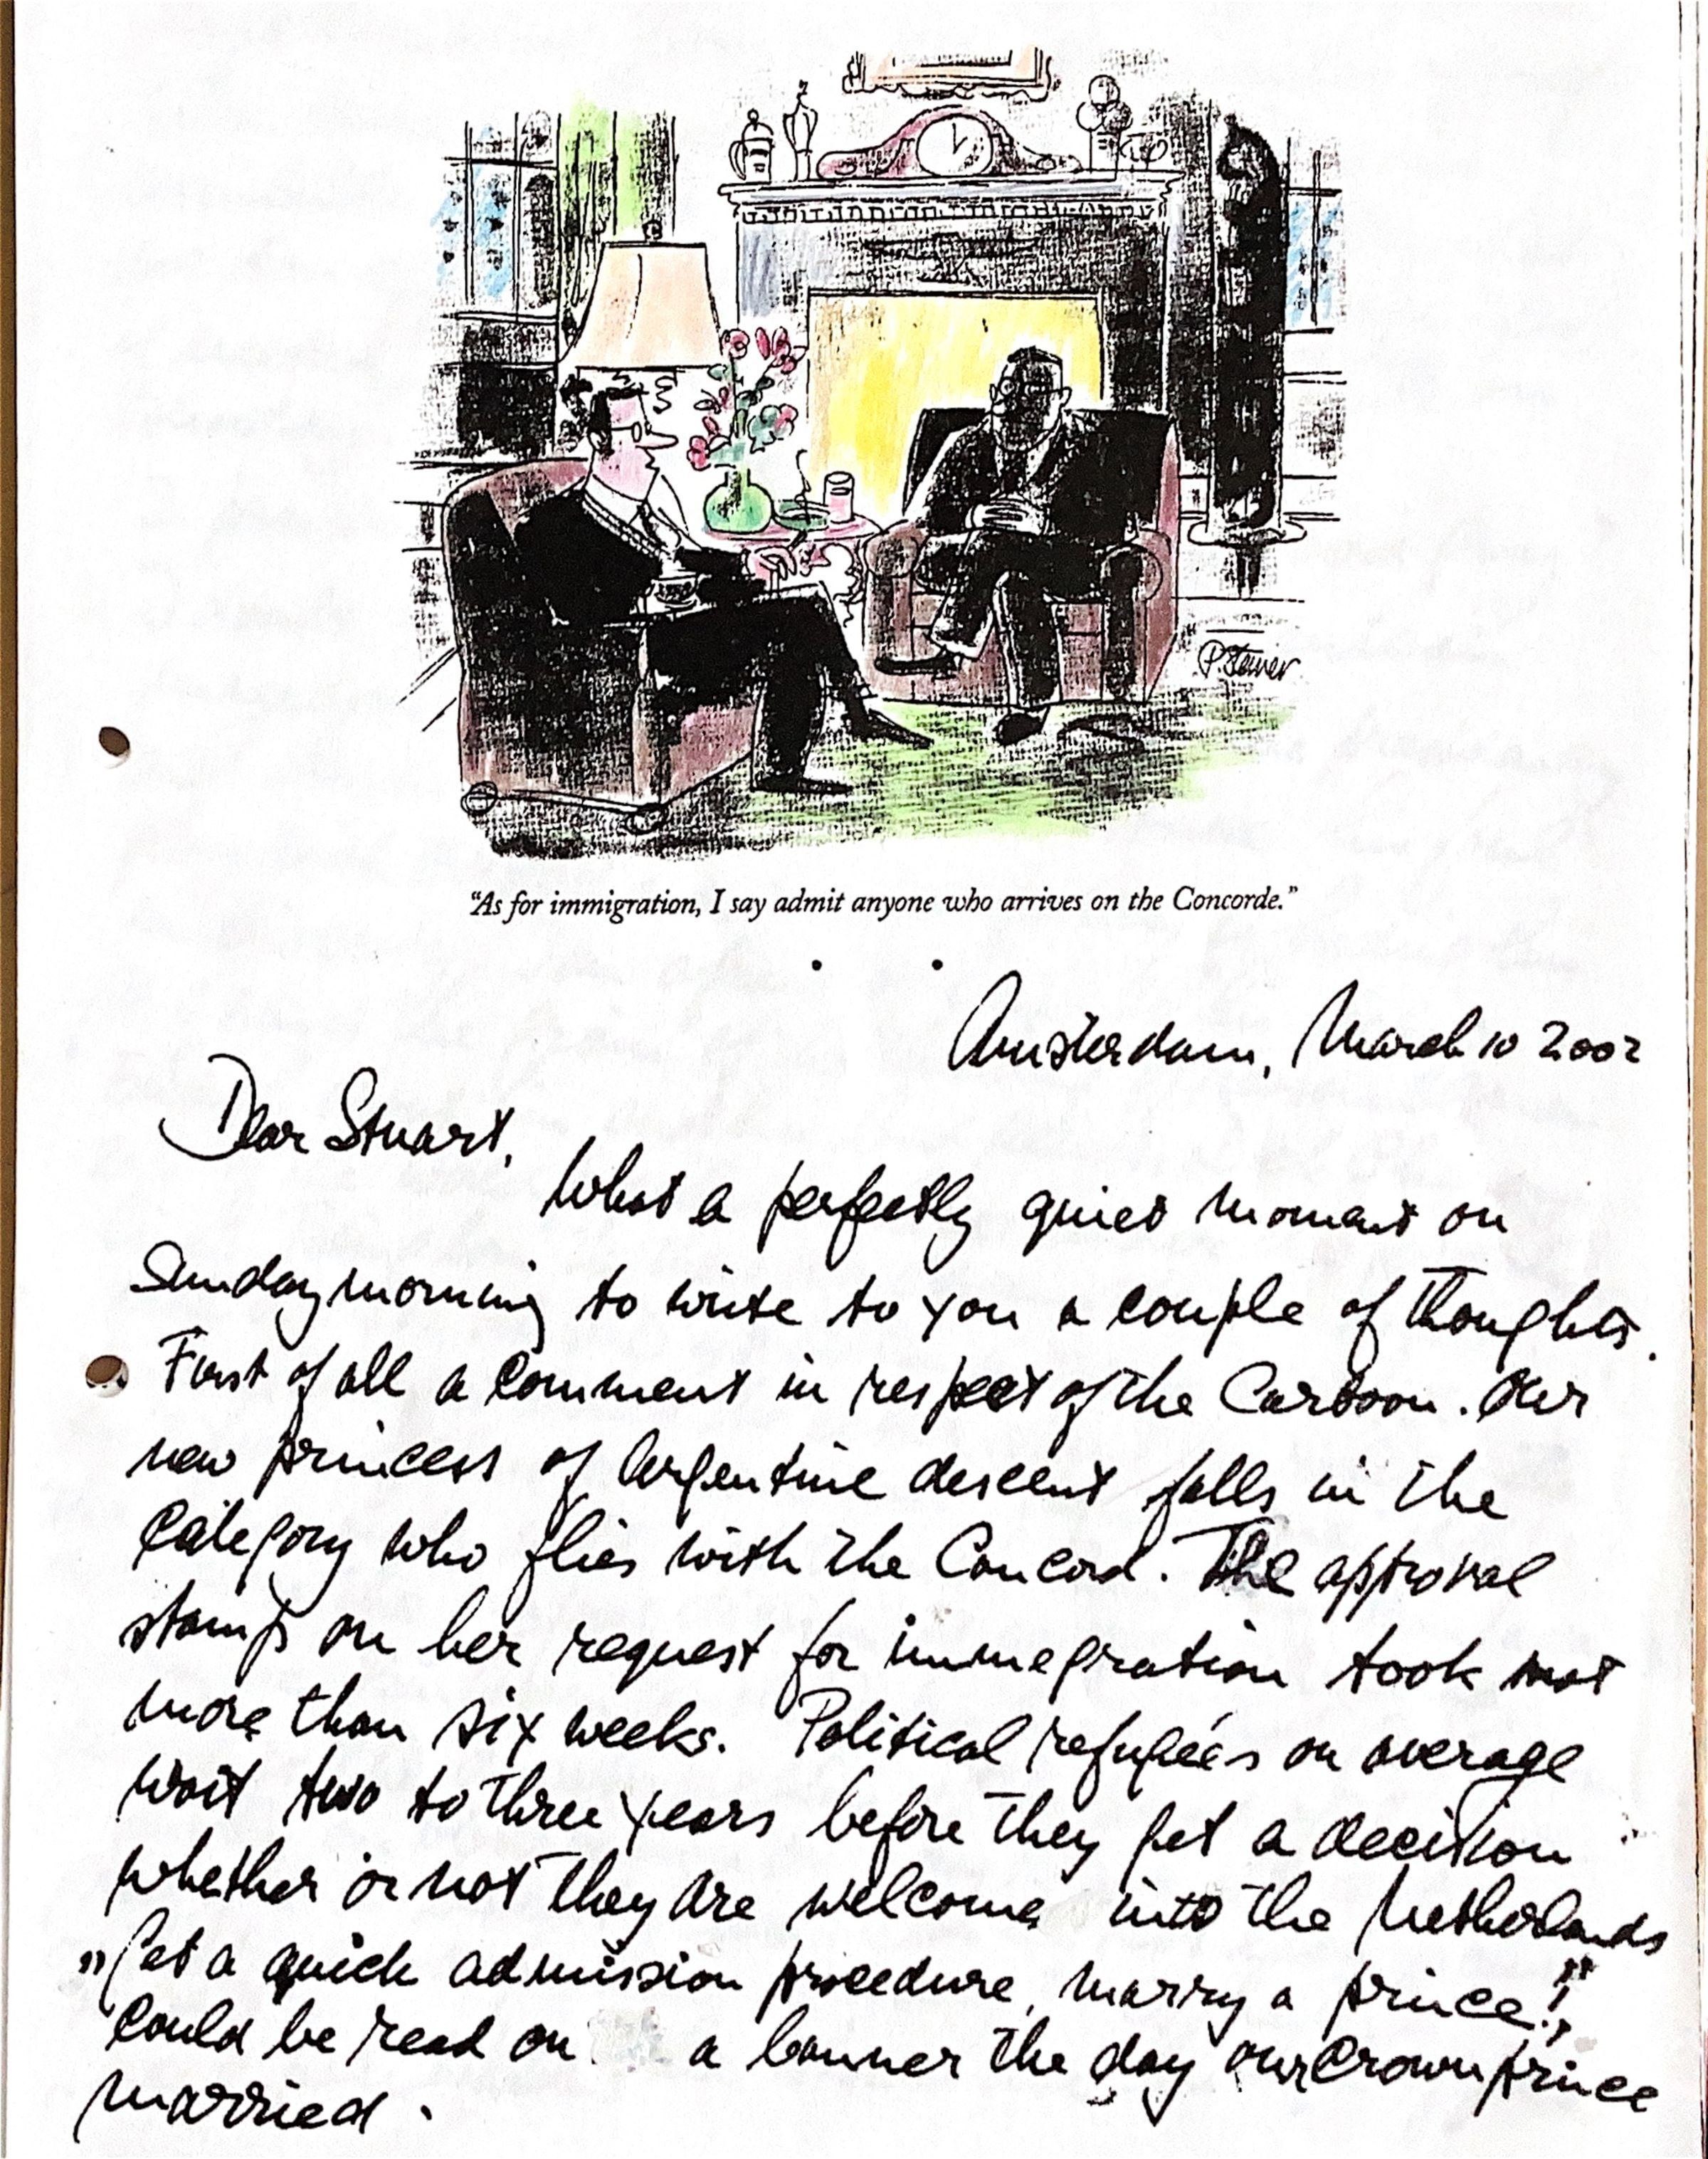 P. Steiner
“As for immigration, I say admit anyone who arrives on the Concorde.”
Amsterdam, March 10 2002
Dear Stuart,
What a perfectly quiet moment on
Sunday morning to write to you a couple of thoughts.
First of all a comment in respect of the Cartoon. Our
new princess of Argentine descent falls in the
category who flies with the Concord. The approval
stamp on her request for immegration took not
more than six weeks. Political refugées on average
wait two to three years before they get a decision
whether or not they are welcome into the Netherlands
„Get a quick admission procedure, marry a prince!”,
could be read on a banner the day our Crownprince
married.